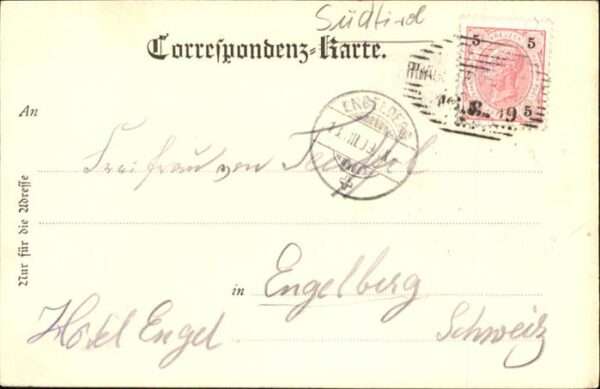 Südtirol
Correspondenz-Karte.
5 5
5
An
ENGELBERG
Freifrau von
Nur für die Adresse
in Engelberg
Hotel Engel
Schweiz